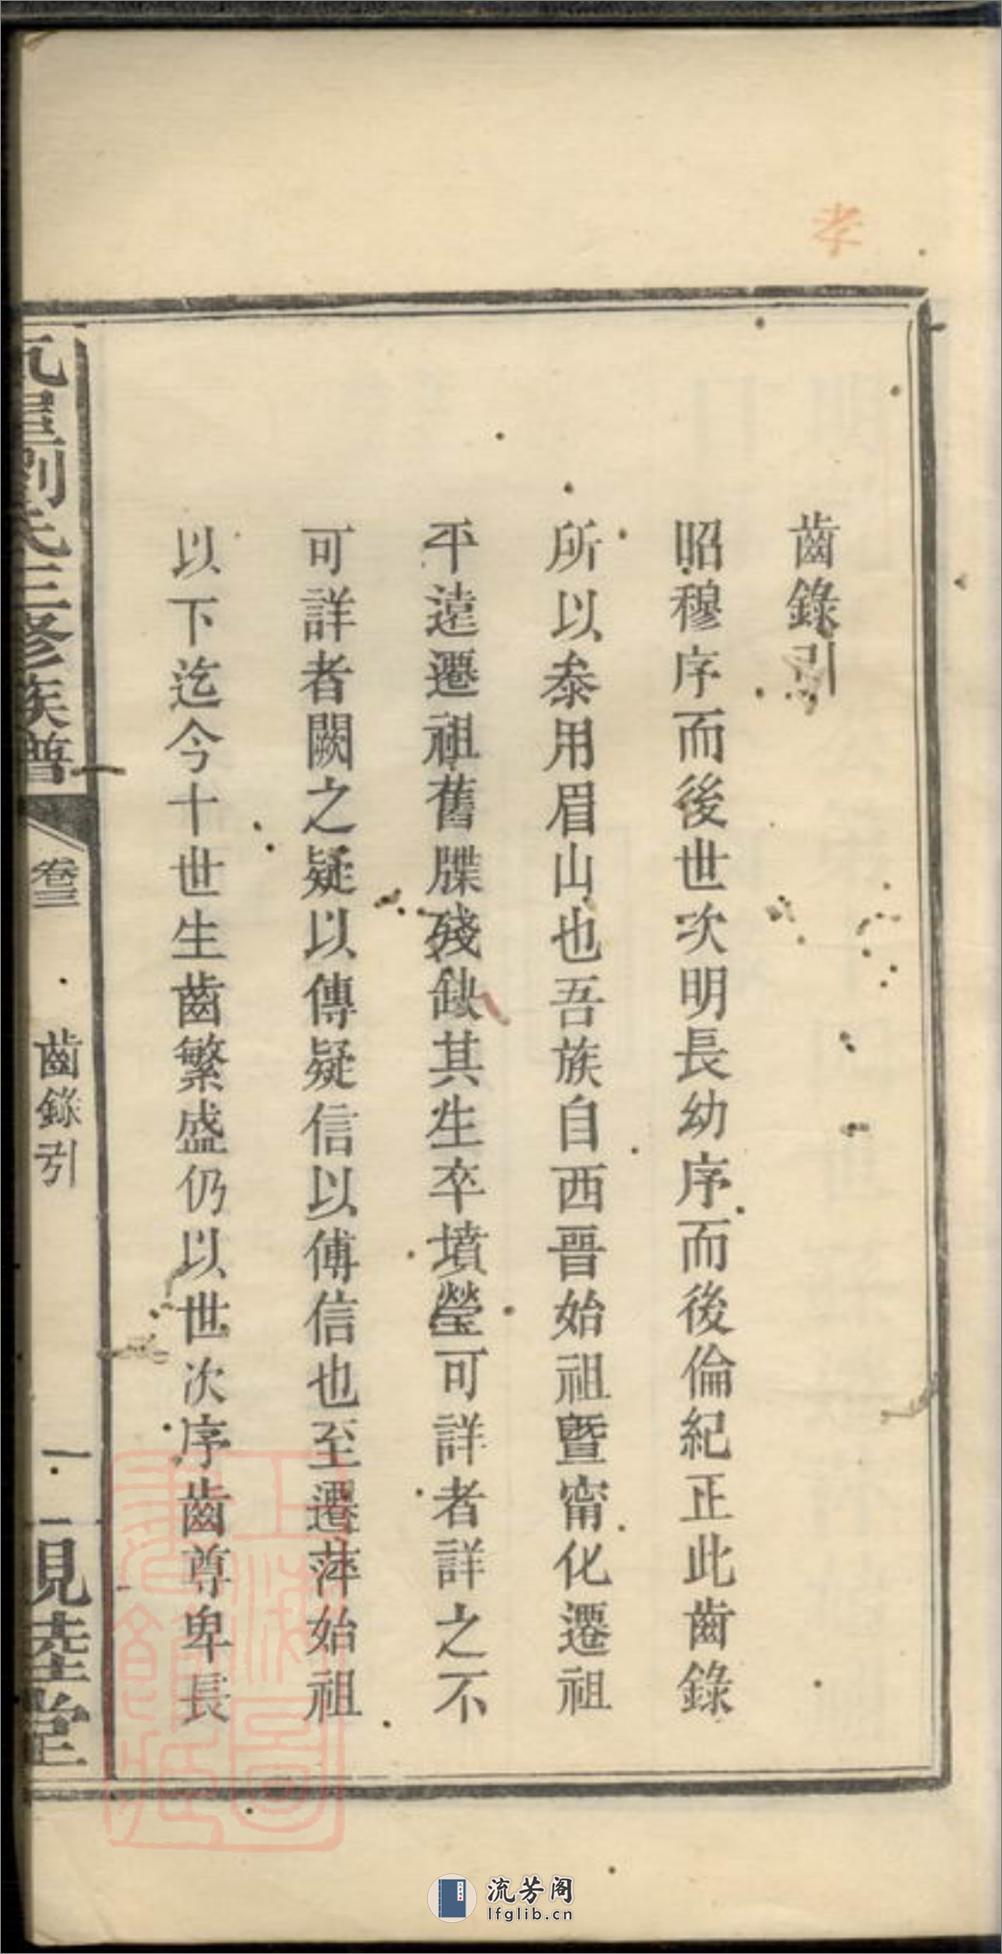 孝
齒錄引
昭穆序而後世次明長幼序而後倫紀正此齒錄
所以叅用眉山也吾族自西晋始祖暨甯化遷祖
平遠遷祖舊牒殘缺其生卒墳瑩可詳者詳之不
可詳者闕之疑以傳疑信以傅信也至遷萍始祖
以下迄今十世生齒繁盛仍以世次序齒尊卑長
劉氏三修族譜
卷三
齒錄引
一
親睦堂
上海圖書館藏
流芳阁
lfglib.cn